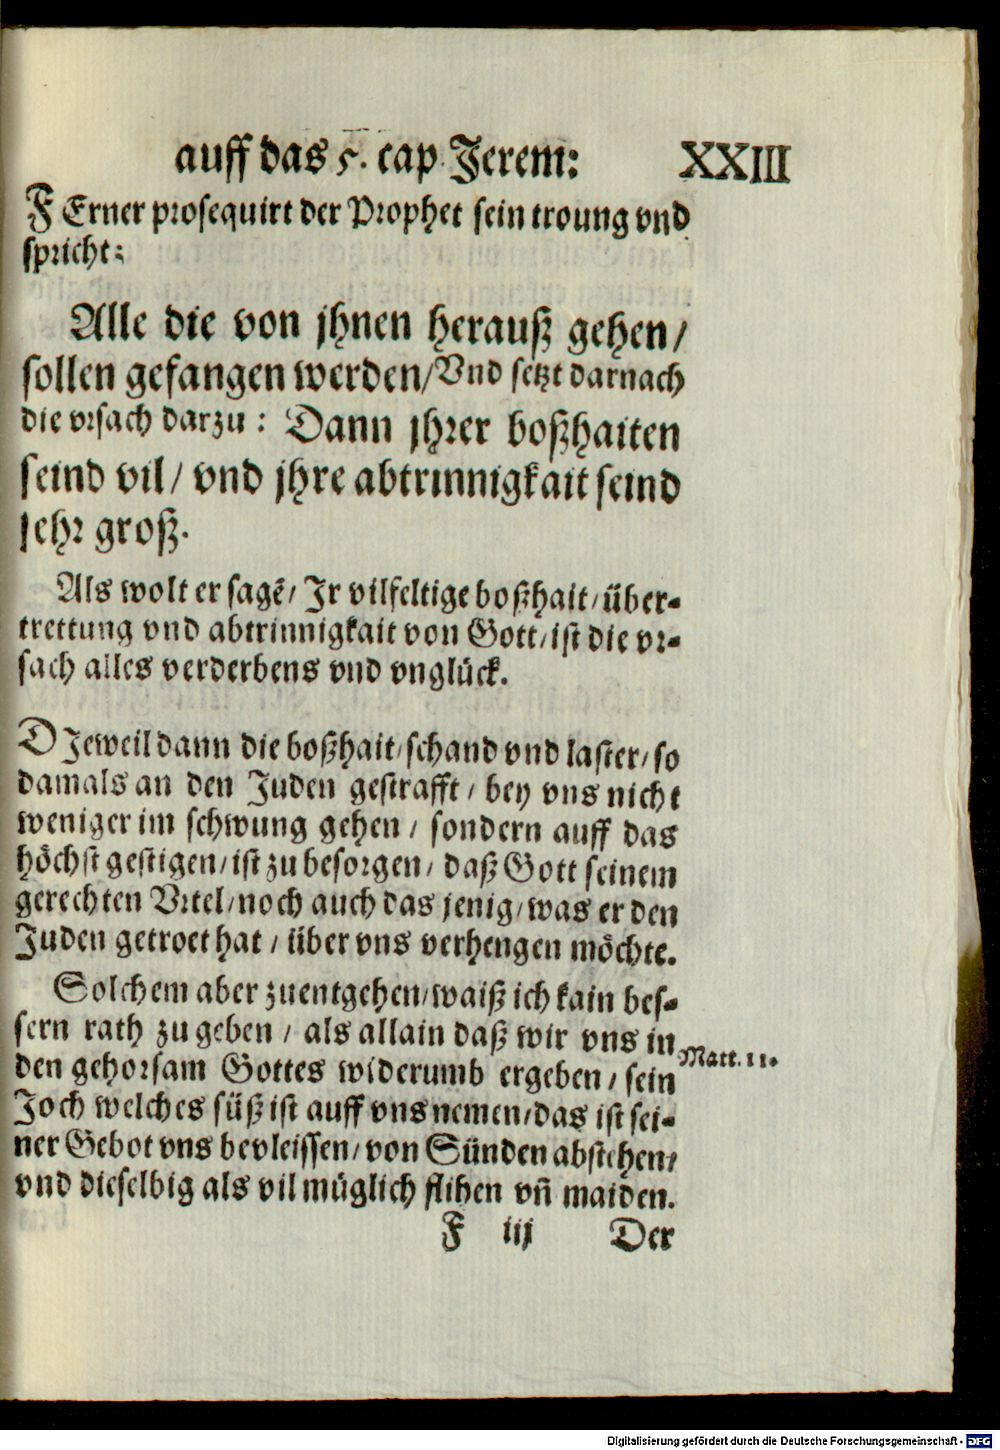 auff das 5. cap. Jerem: XXIII
FErner prosequirt der Prophet sein troung vnd
spricht:
Alle die von jhnen herauß gehen/
sollen gefangen werden/ Vnd setzt darnach
die vrsach darzu : Dann jhrer boßhaiten
seind vil/ vnd jhre abtrinnigkait seind
sehr groß.
Als wolt er sagẽ/ Jr vilfeltige boßhait/ über-
trettung vnd abtrinnigkait von Gott/ ist die vr-
sach alles verderbens vnd vnglück.
DJeweil dann die boßhait/ schand vnd laster/ so
damals an den Juden gestrafft / bey vns nicht
weniger im schwung gehen / sondern auff das
höchst gestigen/ ist zu besorgen/ daß Gott seinem
gerechten Vrtel/ noch auch das jenig/ was er den
Juden getroet hat / über vns verhengen möchte.
Solchem aber zuentgehen/ waiß ich kain bes-
sern rath zu geben / als allain daß wir vns in
den gehorsam Gottes widerumb ergeben / sein
Matt. 11.
Joch welches süß ist auff vns nemen/ das ist sei-
ner Gebot vns bevleissen/ von Sünden abstehen/
vnd dieselbig als vil müglich flihen vñ maiden.
F iij Der
Digitalisierung gefördert durch die Deutsche Forschungsgemeinschaft - DFG